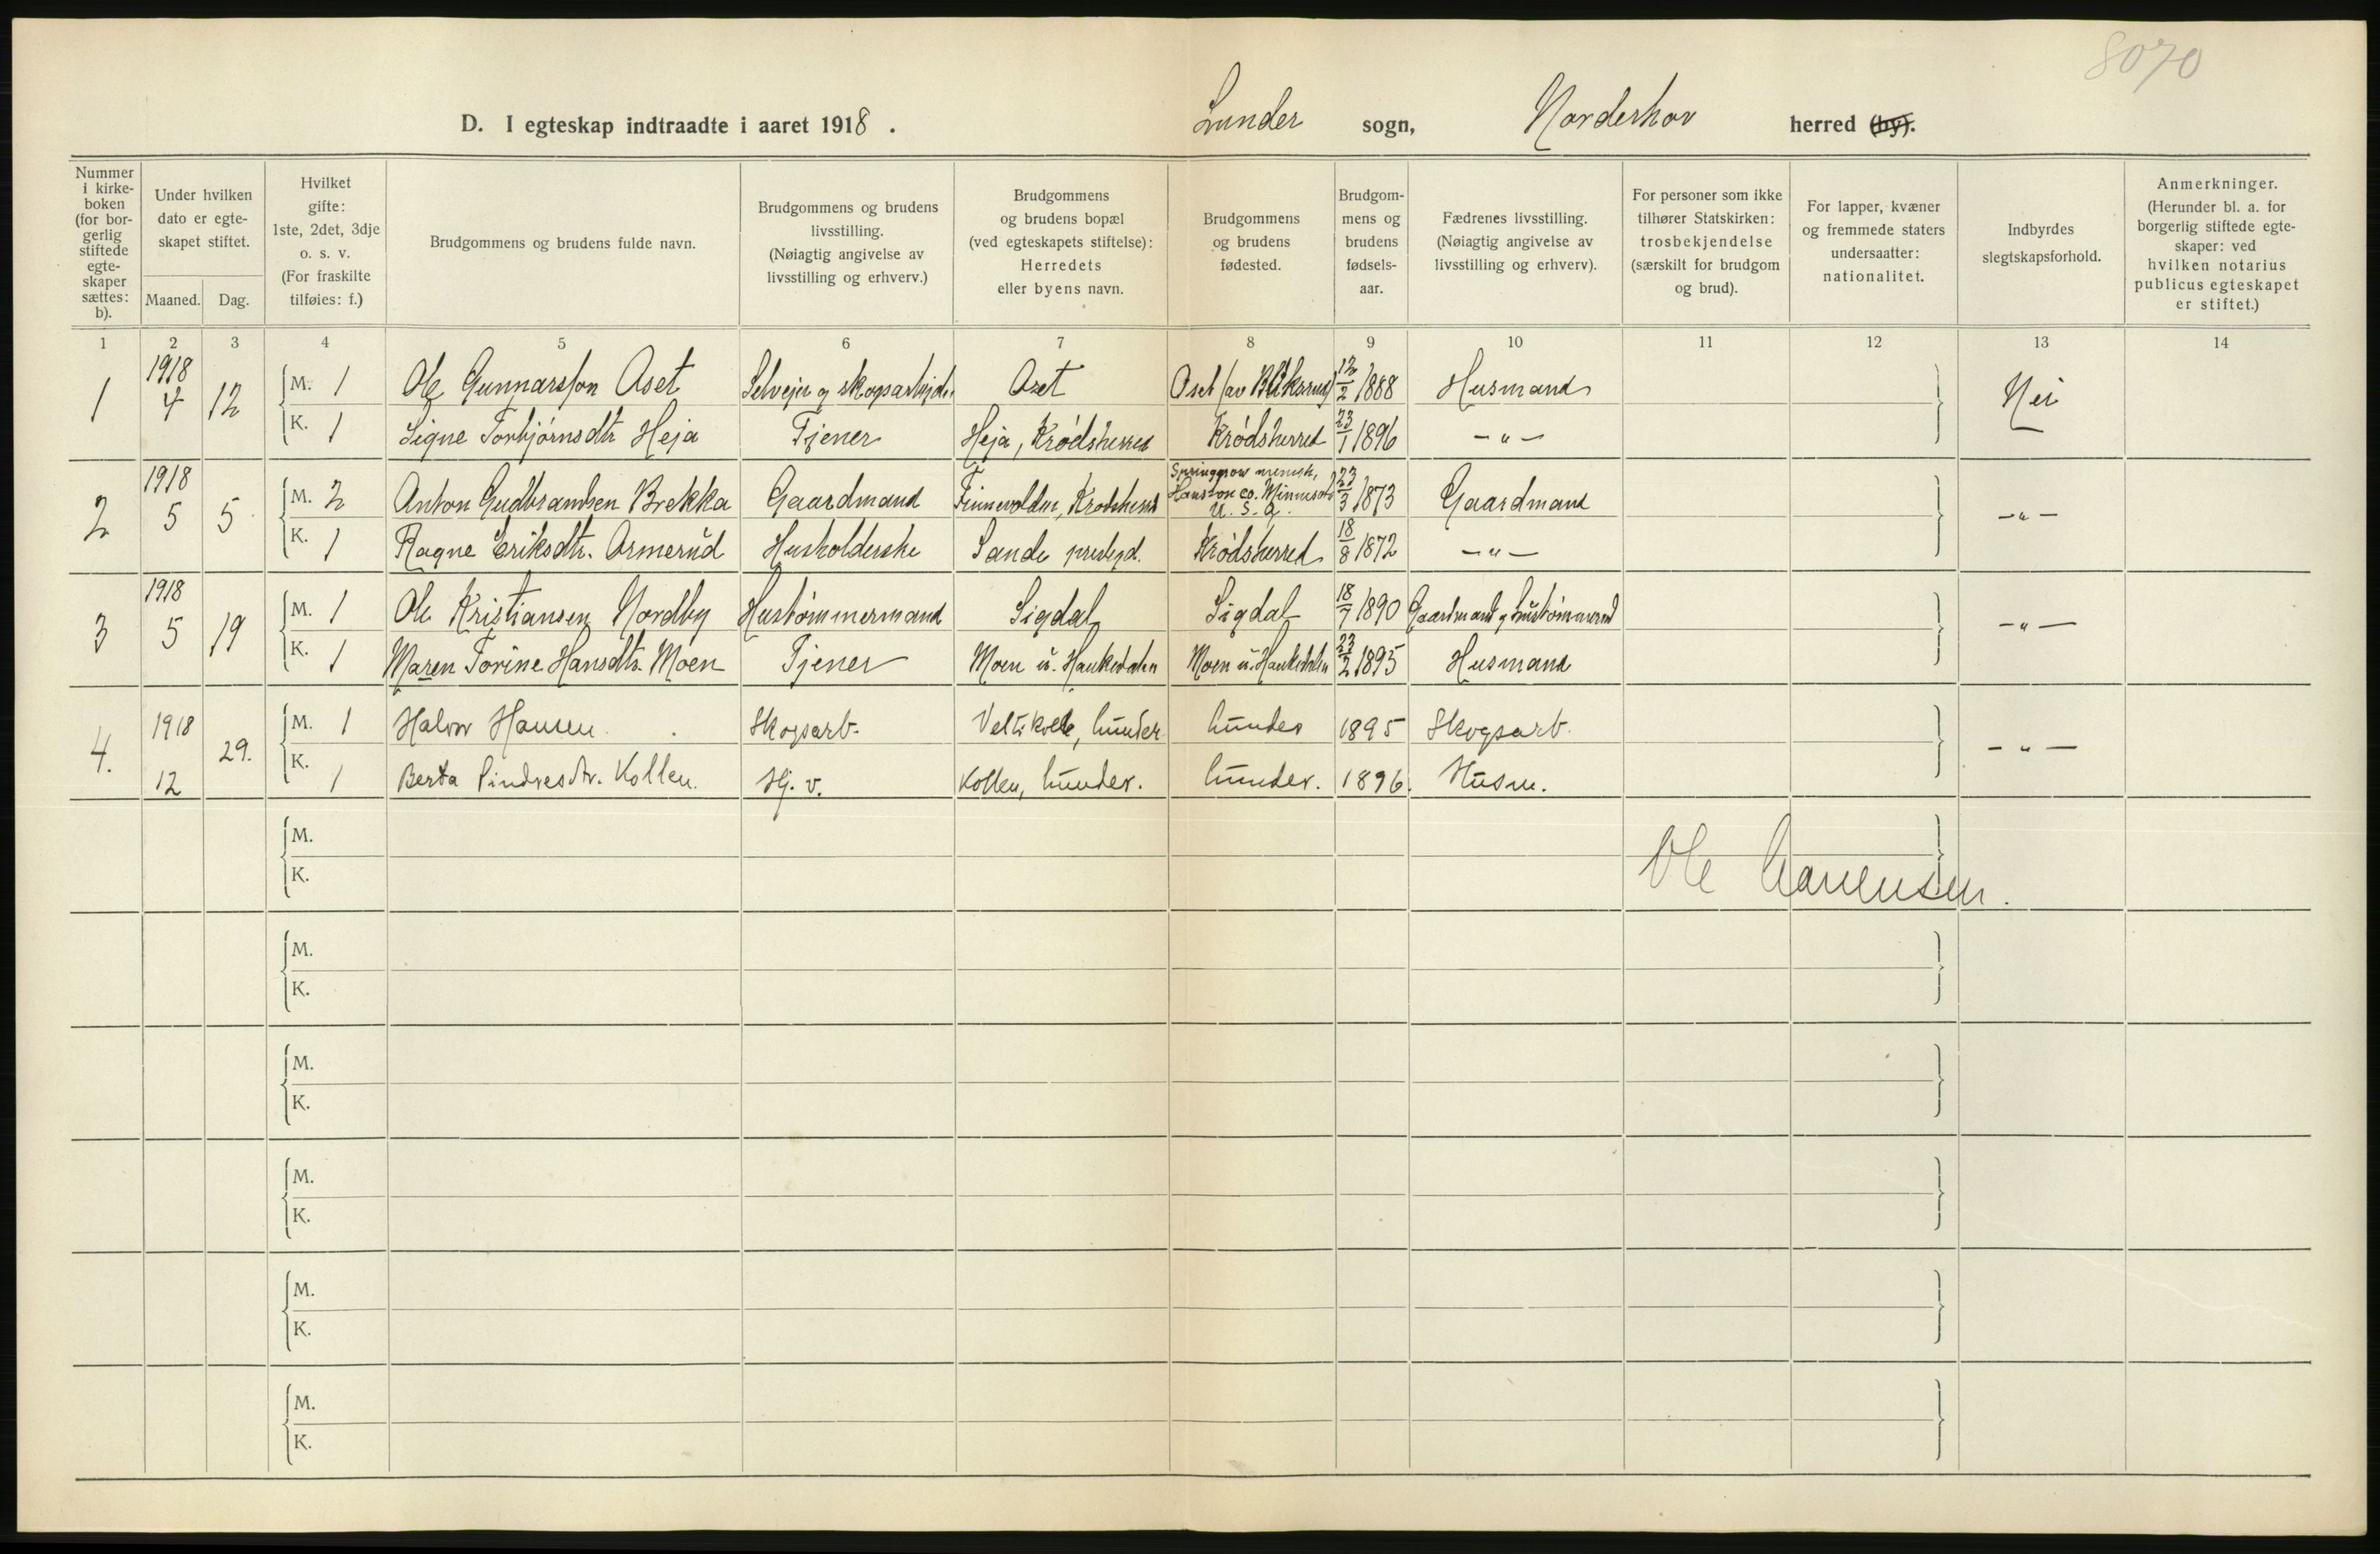 8070
D. I egteskap indtraadte i aaret 1918. Lunder sogn, Norderhov herred (by).
Nummer i kirke-boken (for bor-gerlig stiftede egte-skaper sættes: b).
Under hvilken dato er egte-skapet stiftet.
Maaned. Dag.
Hvilket gifte: 1ste, 2det, 3dje o. s. v. (For fraskilte tilføies: f.)
Brudgommens og brudens fulde navn.
Brudgommens og brudens livsstilling. (Nøiagtig angivelse av livsstilling og erhverv.)
Brudgommens og brudens bopæl (ved egteskapets stiftelse): Herredets eller byens navn.
Brudgommens og brudens fødested.
Brudgom-mens og brudens fødsels-aar.
Fædrenes livsstilling. (Nøiagtig angivelse av livsstilling og erhverv).
For personer som ikke tilhører Statskirken: trosbekjendelse (særskilt for brudgom og brud).
For lapper, kvæner og fremmede staters undersaatter: nationalitet.
Indbyrdes slegtskapsforhold.
Anmerkninger. (Herunder bl. a. for borgerlig stiftede egte-skaper: ved hvilken notarius publicus egteskapet er stiftet.)
1 2 3 4 5 6 7 8 9 10 11 12 13 14
1 1918 4 12 M. 1 Ole Gunnarsson Aset Selveier og skogsarbejder Aset Aset (av 12/2 1888 Husmand Nei
K. 1 Signe Torbjørnsdtr Heja Tjener Heja, Krødsherred Krødsherred 23/1 1896 -"-
2 1918 5 5 M. 2 Anton Gudbrandsen Brekka Gaardmand Krødsherred Springgrow menigh, Houston co. Minnesota U. S. A. 23/3 1873 Gaardmand -"-
K. 1 Ragne Eriksdtr. Ormerud Husholderske Sande prestgd. Krødsherred 18/8 1872 -"-
3 1918 5 19 M. 1 Ole Kristiansen Nordby Hustømmermand Sigdal Sigdal 18/7 1890 Gaardmand og hustømmermd -"-
K. 1 Maren Torine Hansdtr. Moen Tjener Moen u. Haukedalen Moen u. Haukedalen 23/2 1895 Husmand
4. 1918 12 29. M. 1 Halvor Hansen Skogsarb. Lunder Lunder 1895 Skogsarb. -"-
K. 1 Berta Sindresdtr. Kollen. Hj. v. Kollen, Lunder. Lunder. 1896. Husm.
M.
K.
Ole Laurensen.
M.
K.
M.
K.
M.
K.
M.
K.
M.
K.